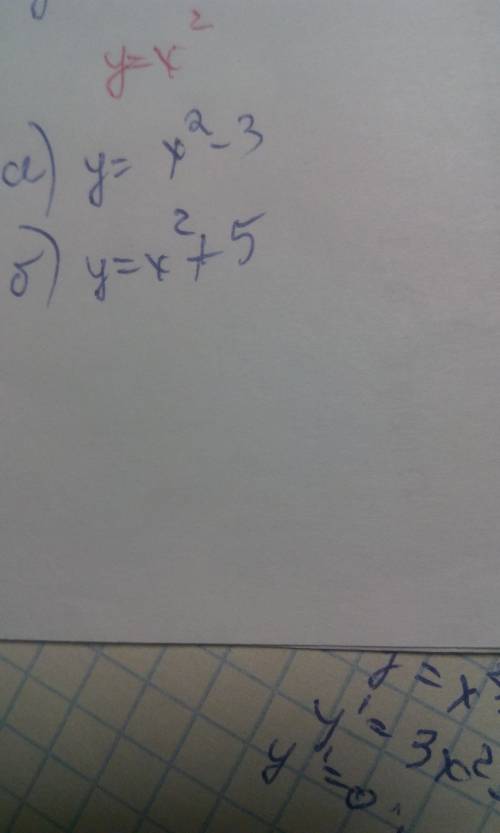 y=x²
а) y= x²-3
б) y=x²+5
y=x
y'=3x²
y'=0